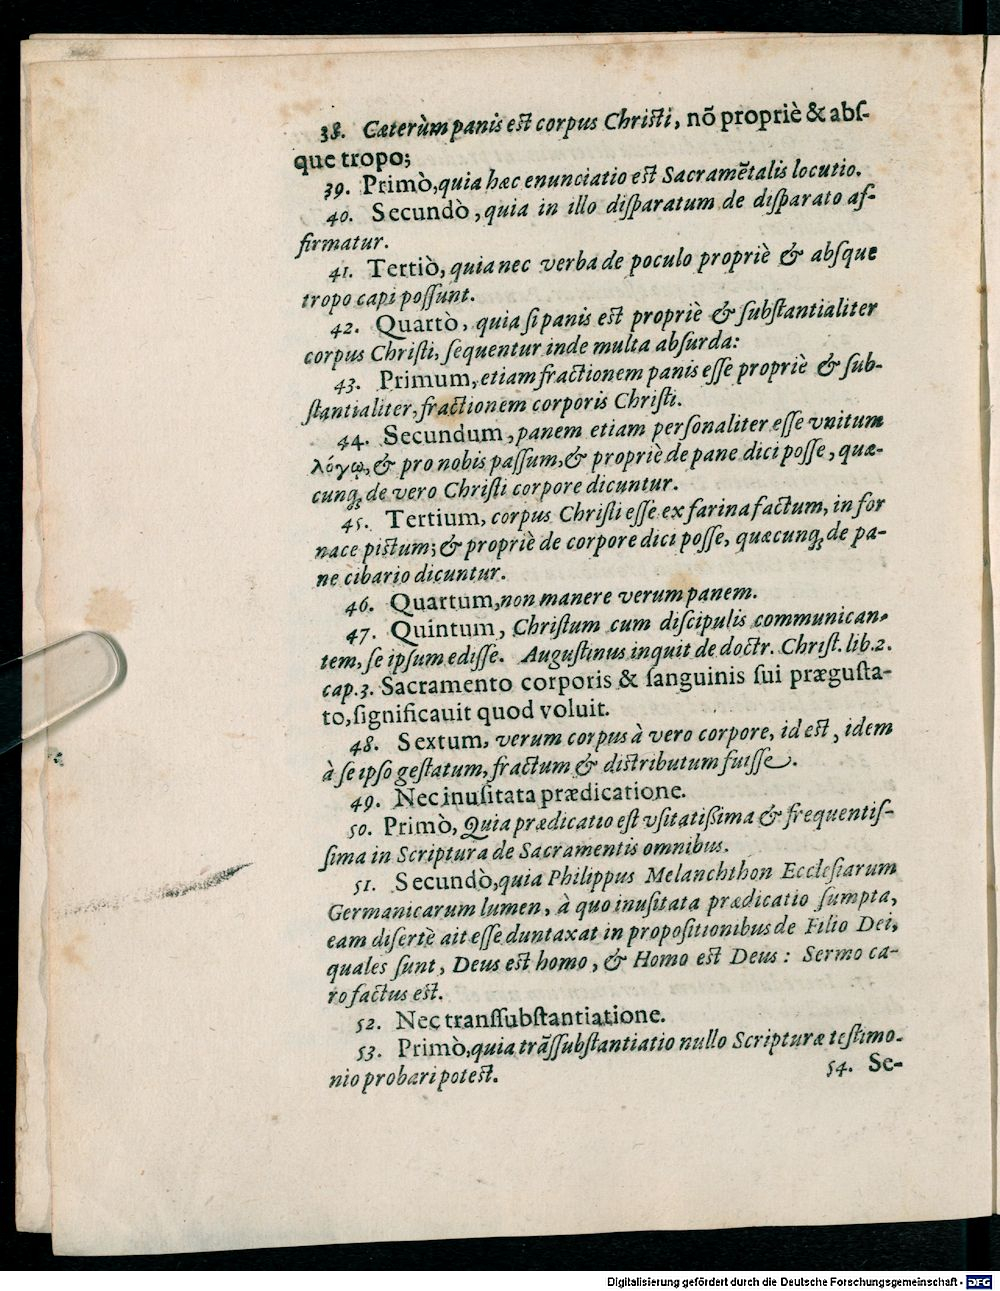 38. Cæterùm panis est corpus Christi, nõ propriè & abſ-
que tropo;
39. Primò, quia hæc enunciatio est Sacramẽtalis locutio.
40. Secundò, quia in illo diſparatum de diſparato af-
firmatur.
41. Tertiò, quia nec verba de poculo propriè & abſque
tropo capi poſſunt.
42. Quartò, quia ſi panis est propriè & ſubſtantialiter
corpus Chriſti, ſequentur inde multa abſurda:
43. Primum, etiam fractionem panis eſſe propriè & ſub-
ſtantialiter, fractionem corporis Chriſti.
44. Secundum, panem etiam perſonaliter eſſe vnitum
λόγῳ, & pro nobis paſſum, & propriè de pane dici poſſe, quæ-
cunq; de vero Chriſti corpore dicuntur.
45. Tertium, corpus Chriſti eſſe ex farina factum, in for
nace pistum; & propriè de corpore dici poſſe, quæcunq; de pa-
ne cibario dicuntur.
46. Quartum, non manere verum panem.
47. Quintum, Chriſtum cum diſcipulis communican-
tem, ſe ipſum ediſſe. Auguſtinus inquit de doctr. Chriſt. lib. 2.
cap. 3. Sacramento corporis & ſanguinis ſui præguſta-
to, ſignificauit quod voluit.
48. Sextum, verum corpus à vero corpore, id est, idem
à ſe ipſo geſtatum, fractum & distributum fuiſſe.
49. Nec inuſitata prædicatione.
50. Primò, Quia prædicatio eſt vſitatiſsima & frequentiſ-
ſima in Scriptura de Sacramentis omnibus.
51. Secundò, quia Philippus Melanchthon Eccleſiarum
Germanicarum lumen, à quo inuſitata prædicatio ſumpta,
eam diſertè ait eſſe duntaxat in propoſitionibus de Filio Dei,
quales ſunt, Deus est homo, & Homo est Deus: Sermo ca-
ro factus est.
52. Nec transſubſtantiatione.
53. Primò, quia trãſſubſtantiatio nullo Scripturæ testimo-
nio probari potest.
54. Se-
Digitalisierung gefördert durch die Deutsche Forschungsgemeinschaft - DFG